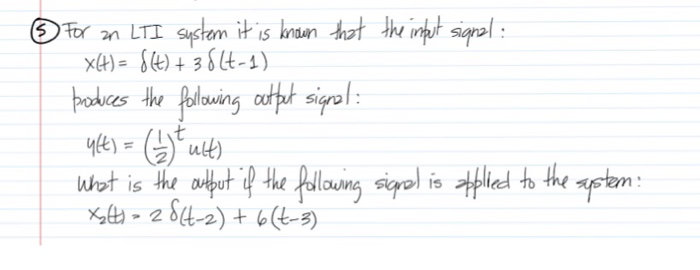 ⑤ For an LTI system it is known that the input signal:
x(t) = δ(t) + 3δ(t-1)
produces the following output signal:
y(t) = (1/2)^t u(t)
What is the output if the following signal is applied to the system:
x₂(t) = 2δ(t-2) + 6(t-3)